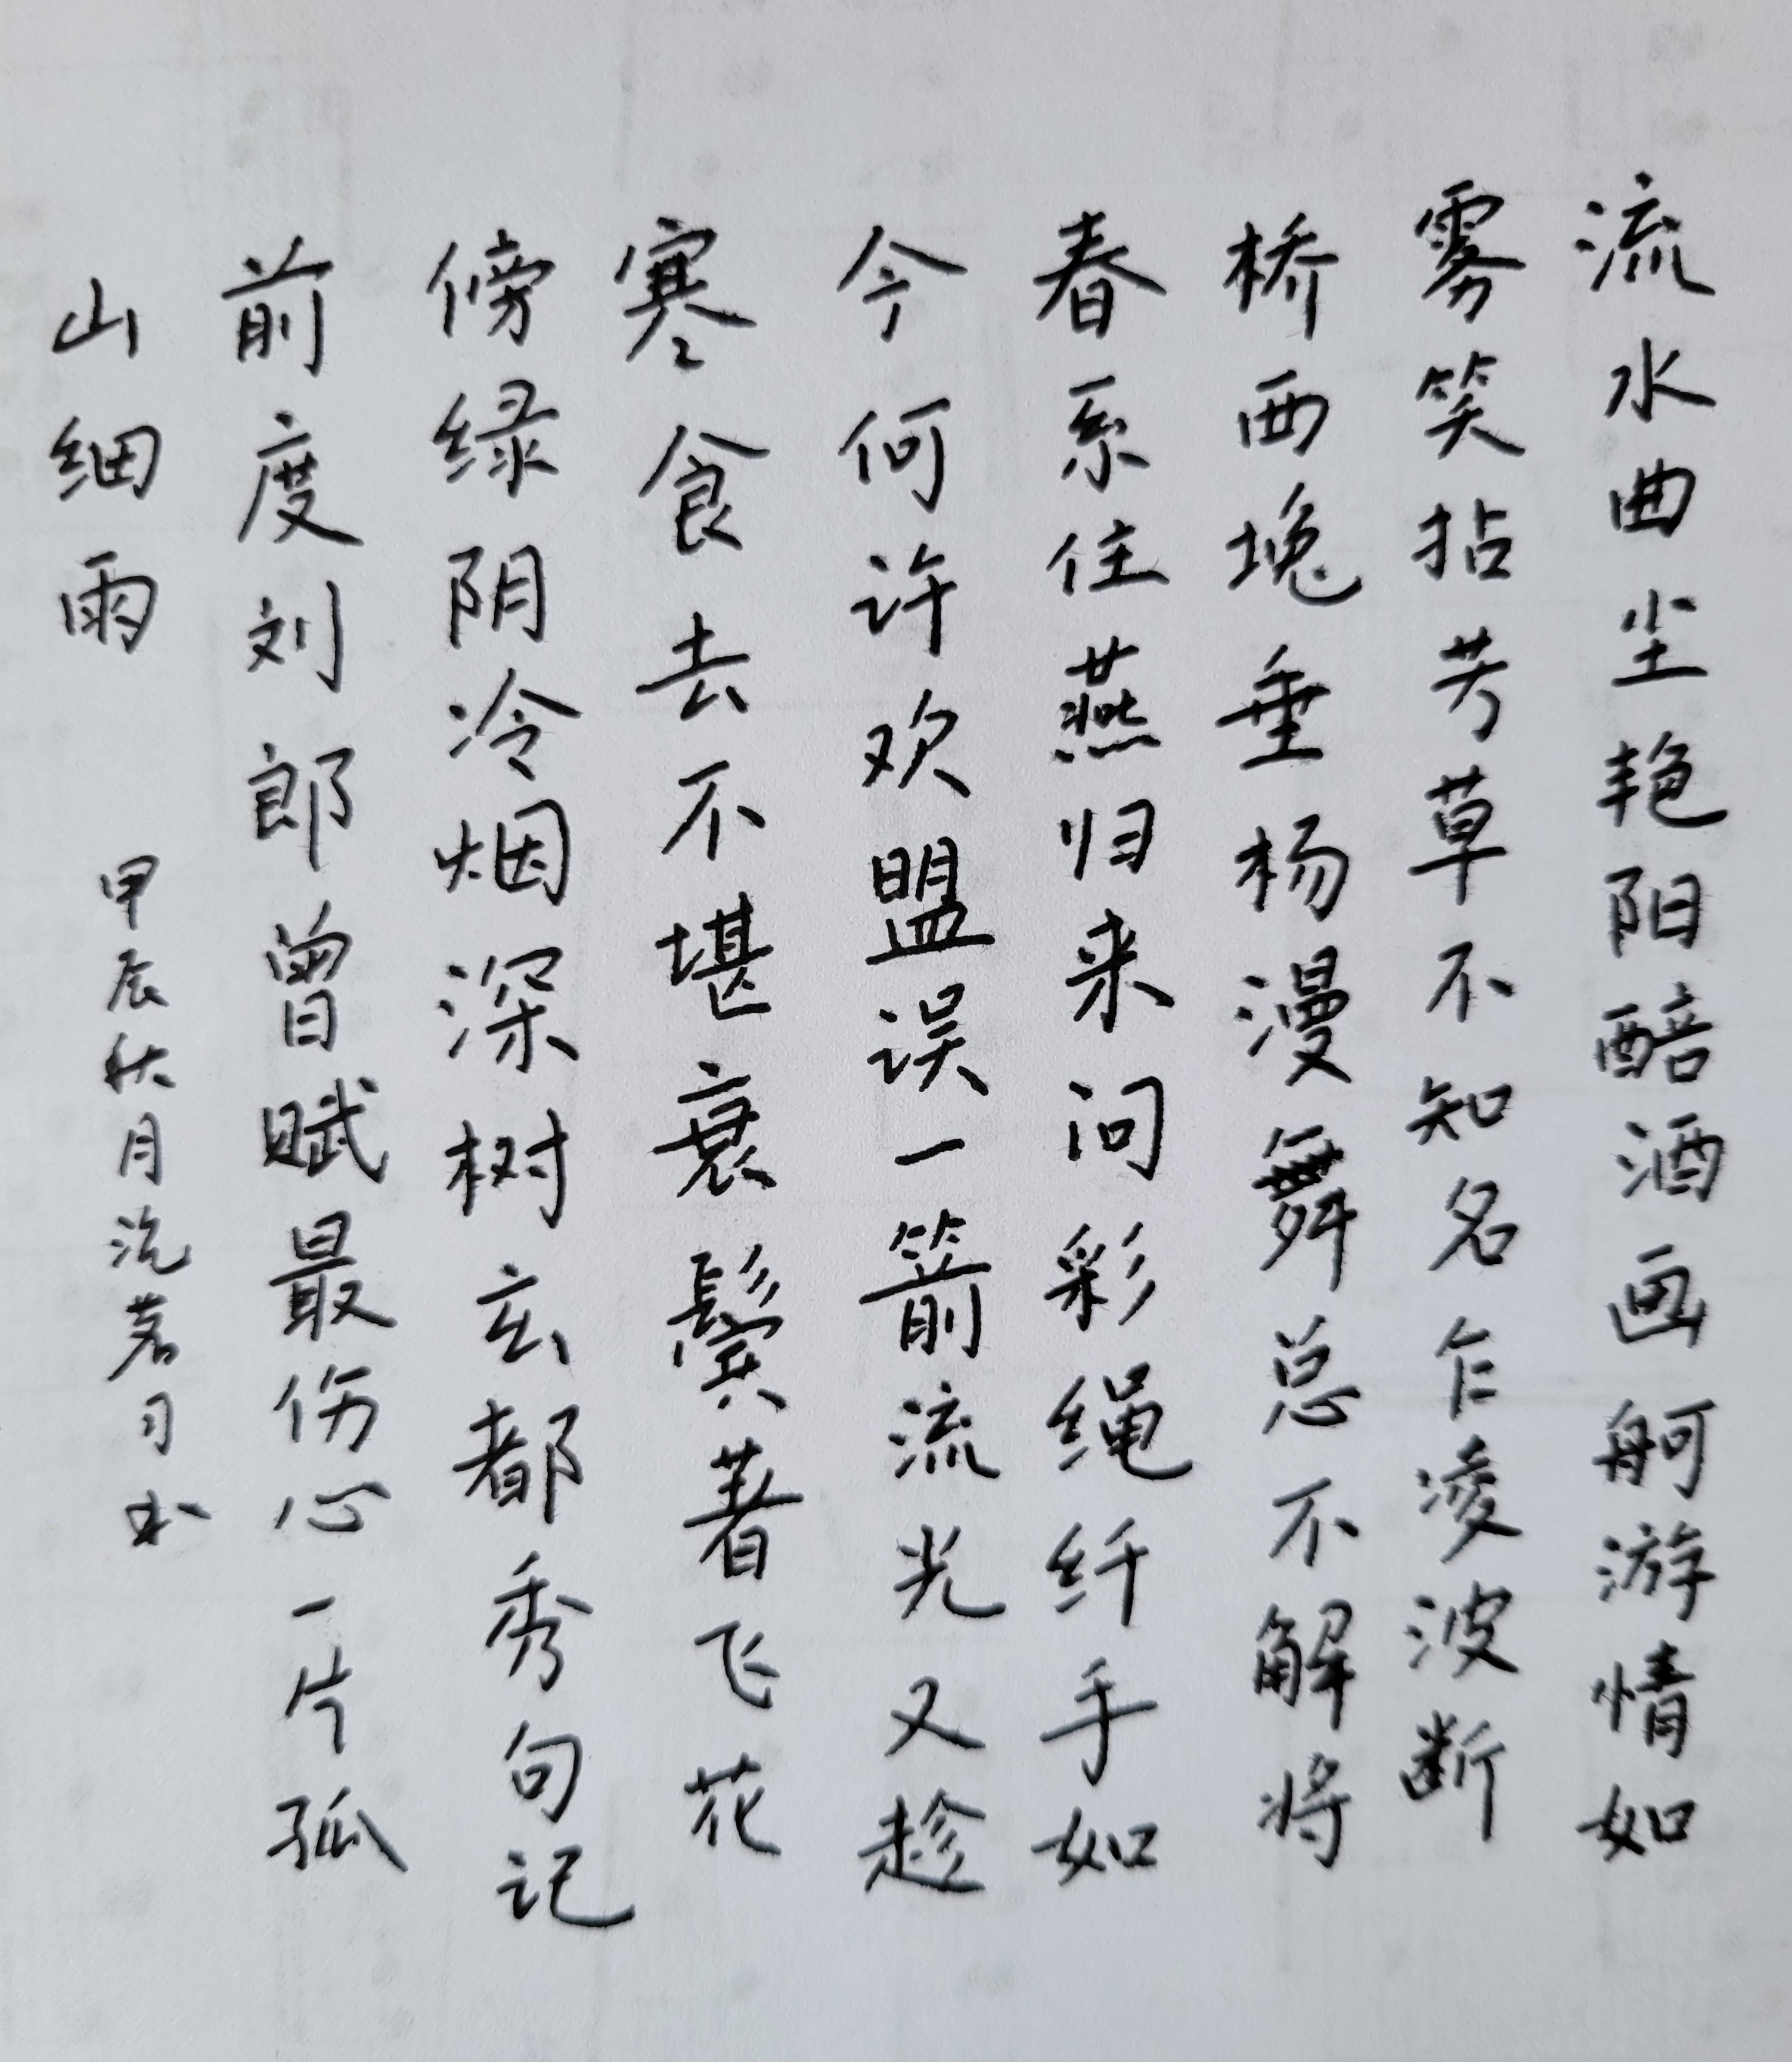 流水曲尘艳阳醅酒画舸游情如
雾笑拈芳草不知名乍凌波断
桥西堍垂杨漫舞总不解将
春系住燕归来问彩绳纤手如
今何许欢盟误一箭流光又趁
寒食去不堪衰鬓著飞花
傍绿阴冷烟深树玄都秀句记
前度刘郎曾赋最伤心一片孤
山细雨
甲辰秋月汔茗习书